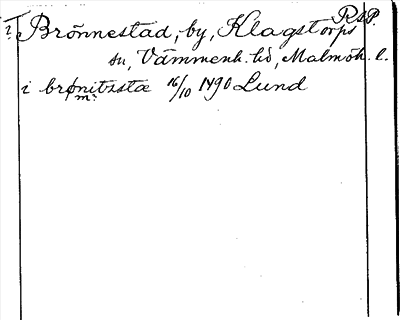 ? Brönnestad, by, Klagstorps RäP.
sn, Vämmenh. hd, Malmöh. l.
i brønitzstæ 16/10 1490 Lund
m?